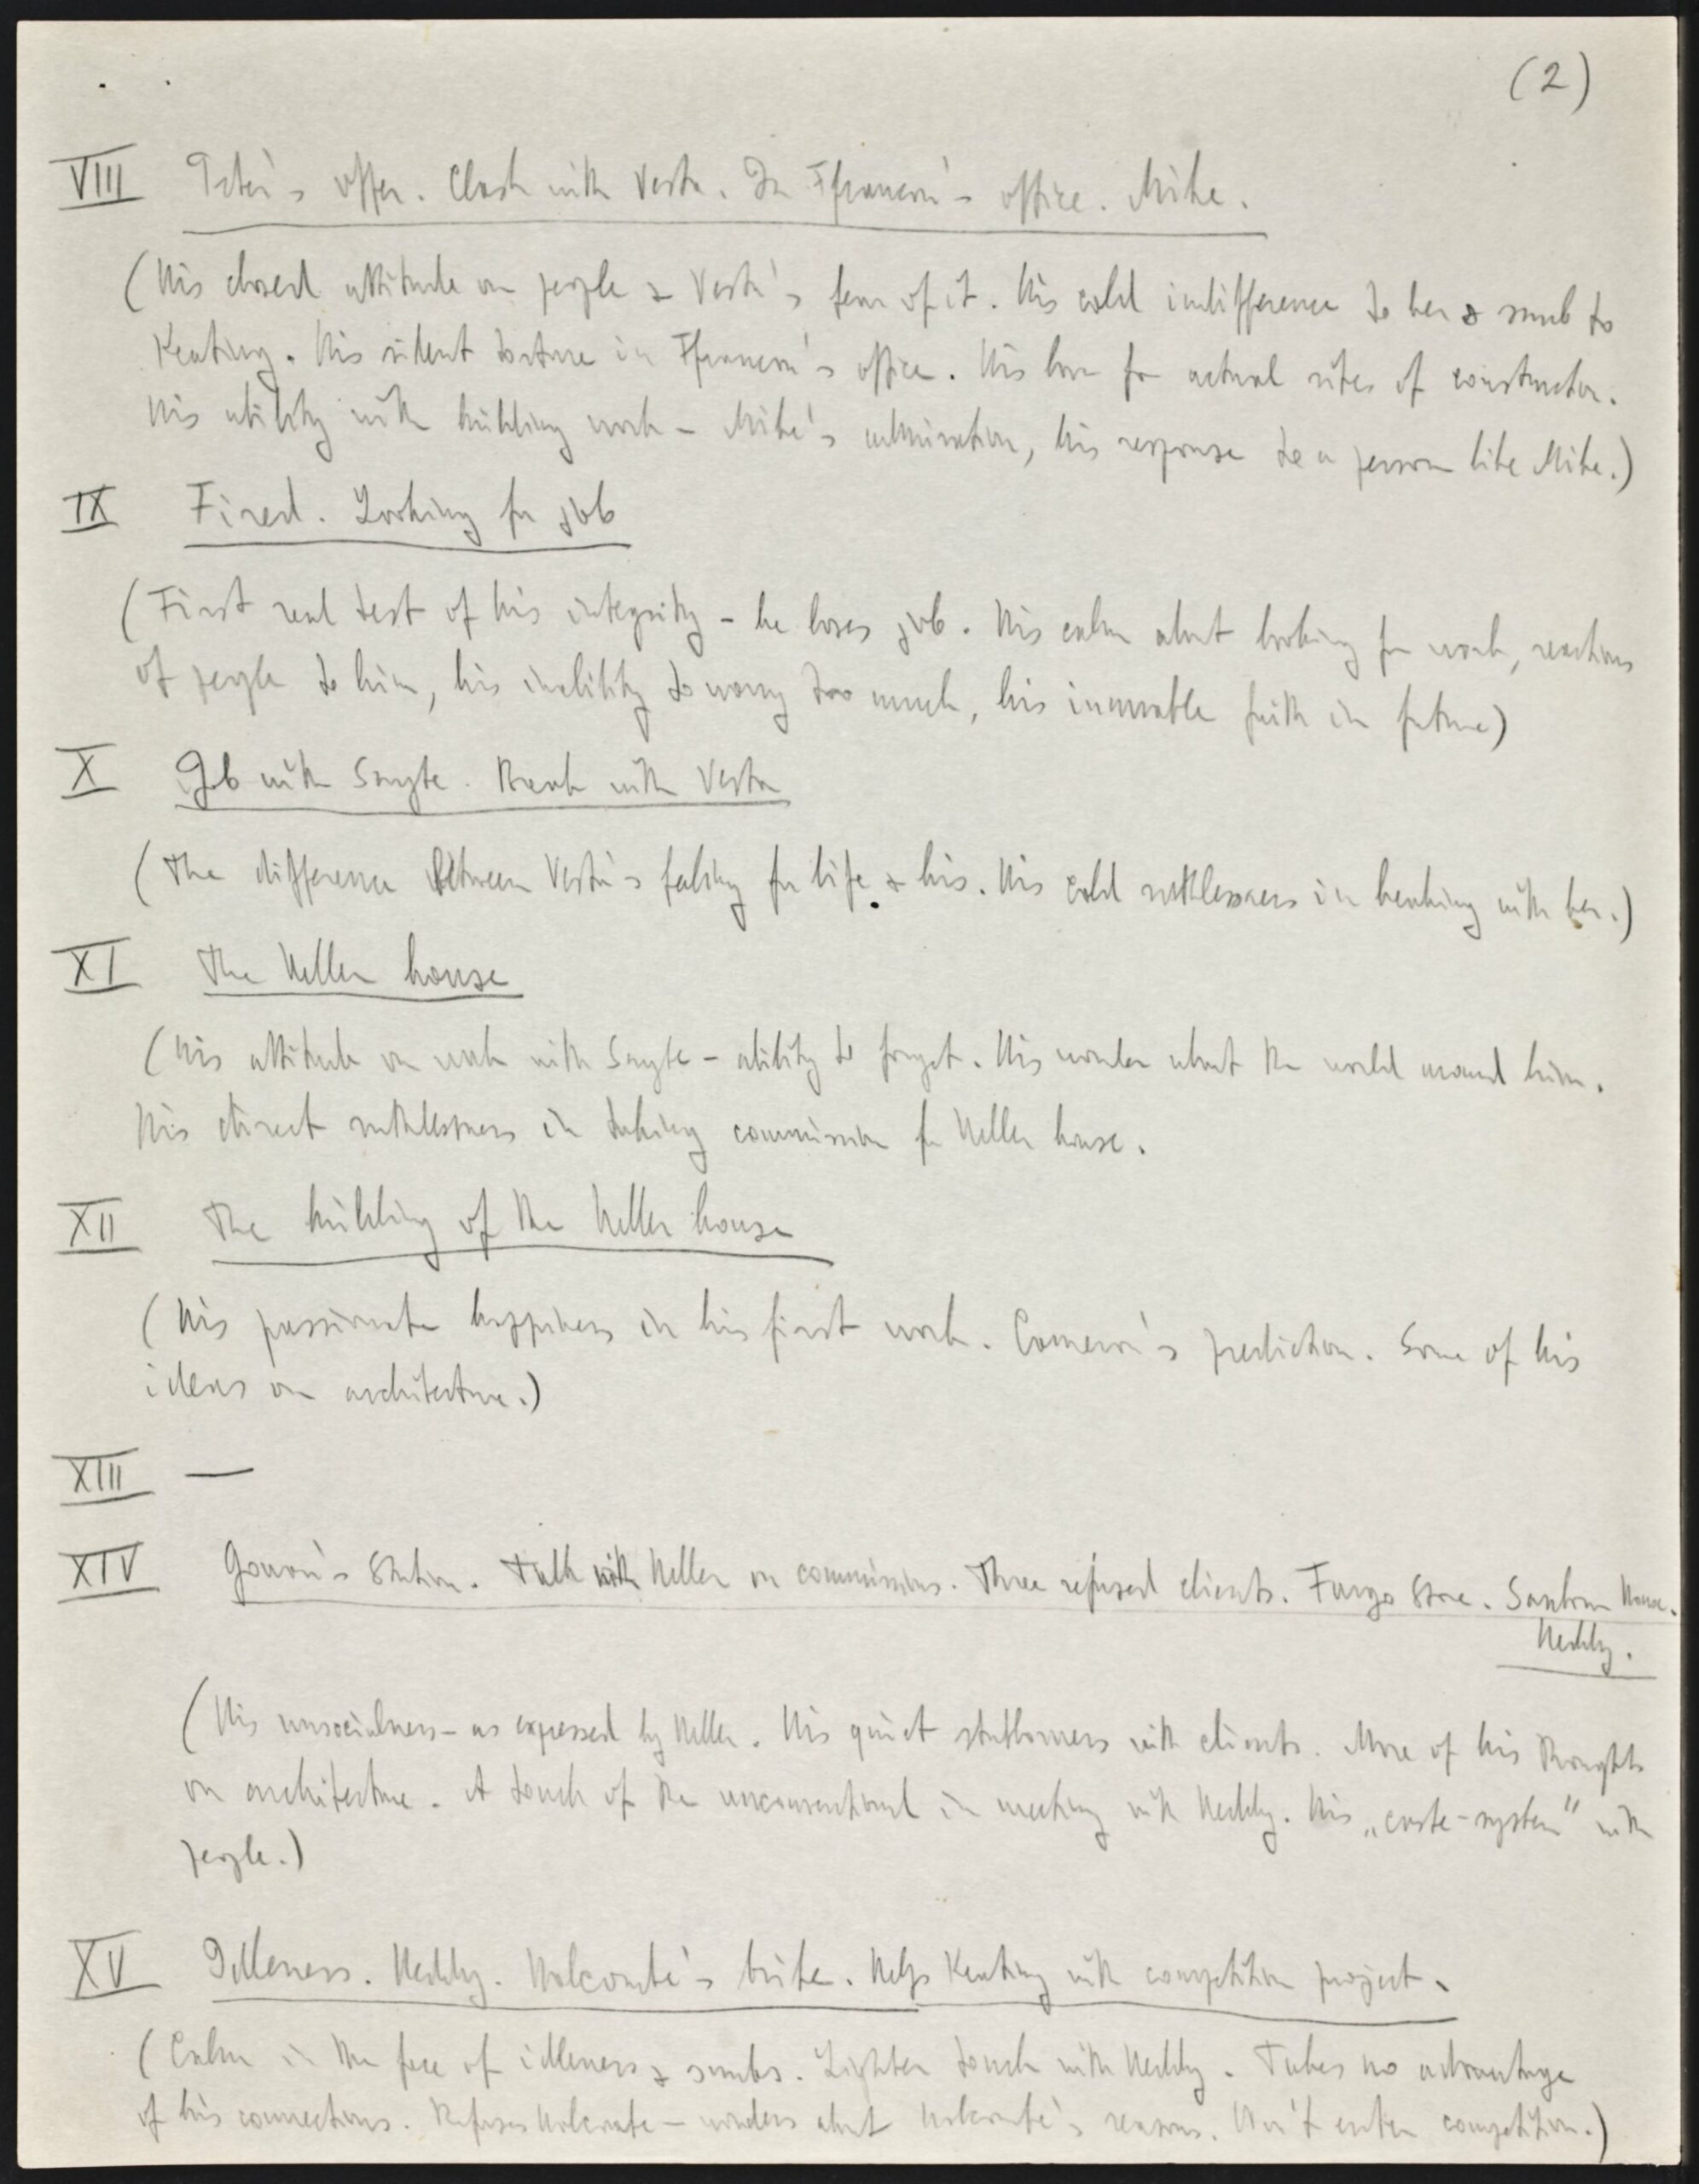 (2)
VIII Peter's offer. Clash with Vesta. In Francon's office. Mike.
(His closed attitude on people & Vesta's fear of it. His cold indifference to her & snub to
Keating. His silent torture in Francon's office. His love for actual sites of construction.
His ability with building work – Mike's admiration, his response to a person like Mike.)
IX Fired. Looking for job
(First real test of his integrity – he loses job. His calm about looking for work, reactions
of people to him, his inability to worry too much, his immovable faith in future)
X Job with Snyte. Break with Vesta
(The difference between Vesta's feeling for life & his. His cold ruthlessness in breaking with her.)
XI The Heller house
(His attitude on work with Snyte – ability to forget. His wonder about the world around him.
His direct ruthlessness in taking commission for Heller house.
XII The building of the Heller house
(His passionate happiness in his first work. Cameron's prediction. Some of his
ideas on architecture.)
XIII —
XIV Gowan's Station. Talk with Heller on commissions. Three refused clients. Fargo Store. Sanborn House.
Heddy.
(His unsocialness – as expressed by Heller. His quiet stubbornness with clients. More of his thoughts
on architecture. A touch of the unconventional in meeting with Heddy. His „caste-system" with
people.)
XV Idleness. Heddy. Holcombe's bribe. Helps Keating with competition project.
(Calm in the face of idleness & snubs. Lighter touch with Heddy. Takes no advantage
of his connections. Refuses Holcombe – wonders about Holcombe's reasons. Won't enter competition.)